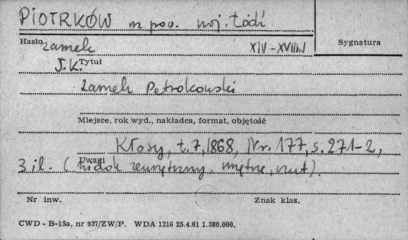 PIOTRKÓW m. pow. woj. Łódź
Hasło zamek XIV-XVIII w
Sygnatura
J. K. Tytuł
Zamek Petrokowski
Miejsce, rok wyd., nakładca, format, objętość
Kłosy, t. 7, 1868, Nr. 177, s. 271-2,
Uwagi
3 il. (widok zewnętrzny, wnętrze, rzut).
Nr inw. Znak klas.
CWD - B-15a, nr 937/ZW/P. WDA 1216 25.4.61 1.380.000.